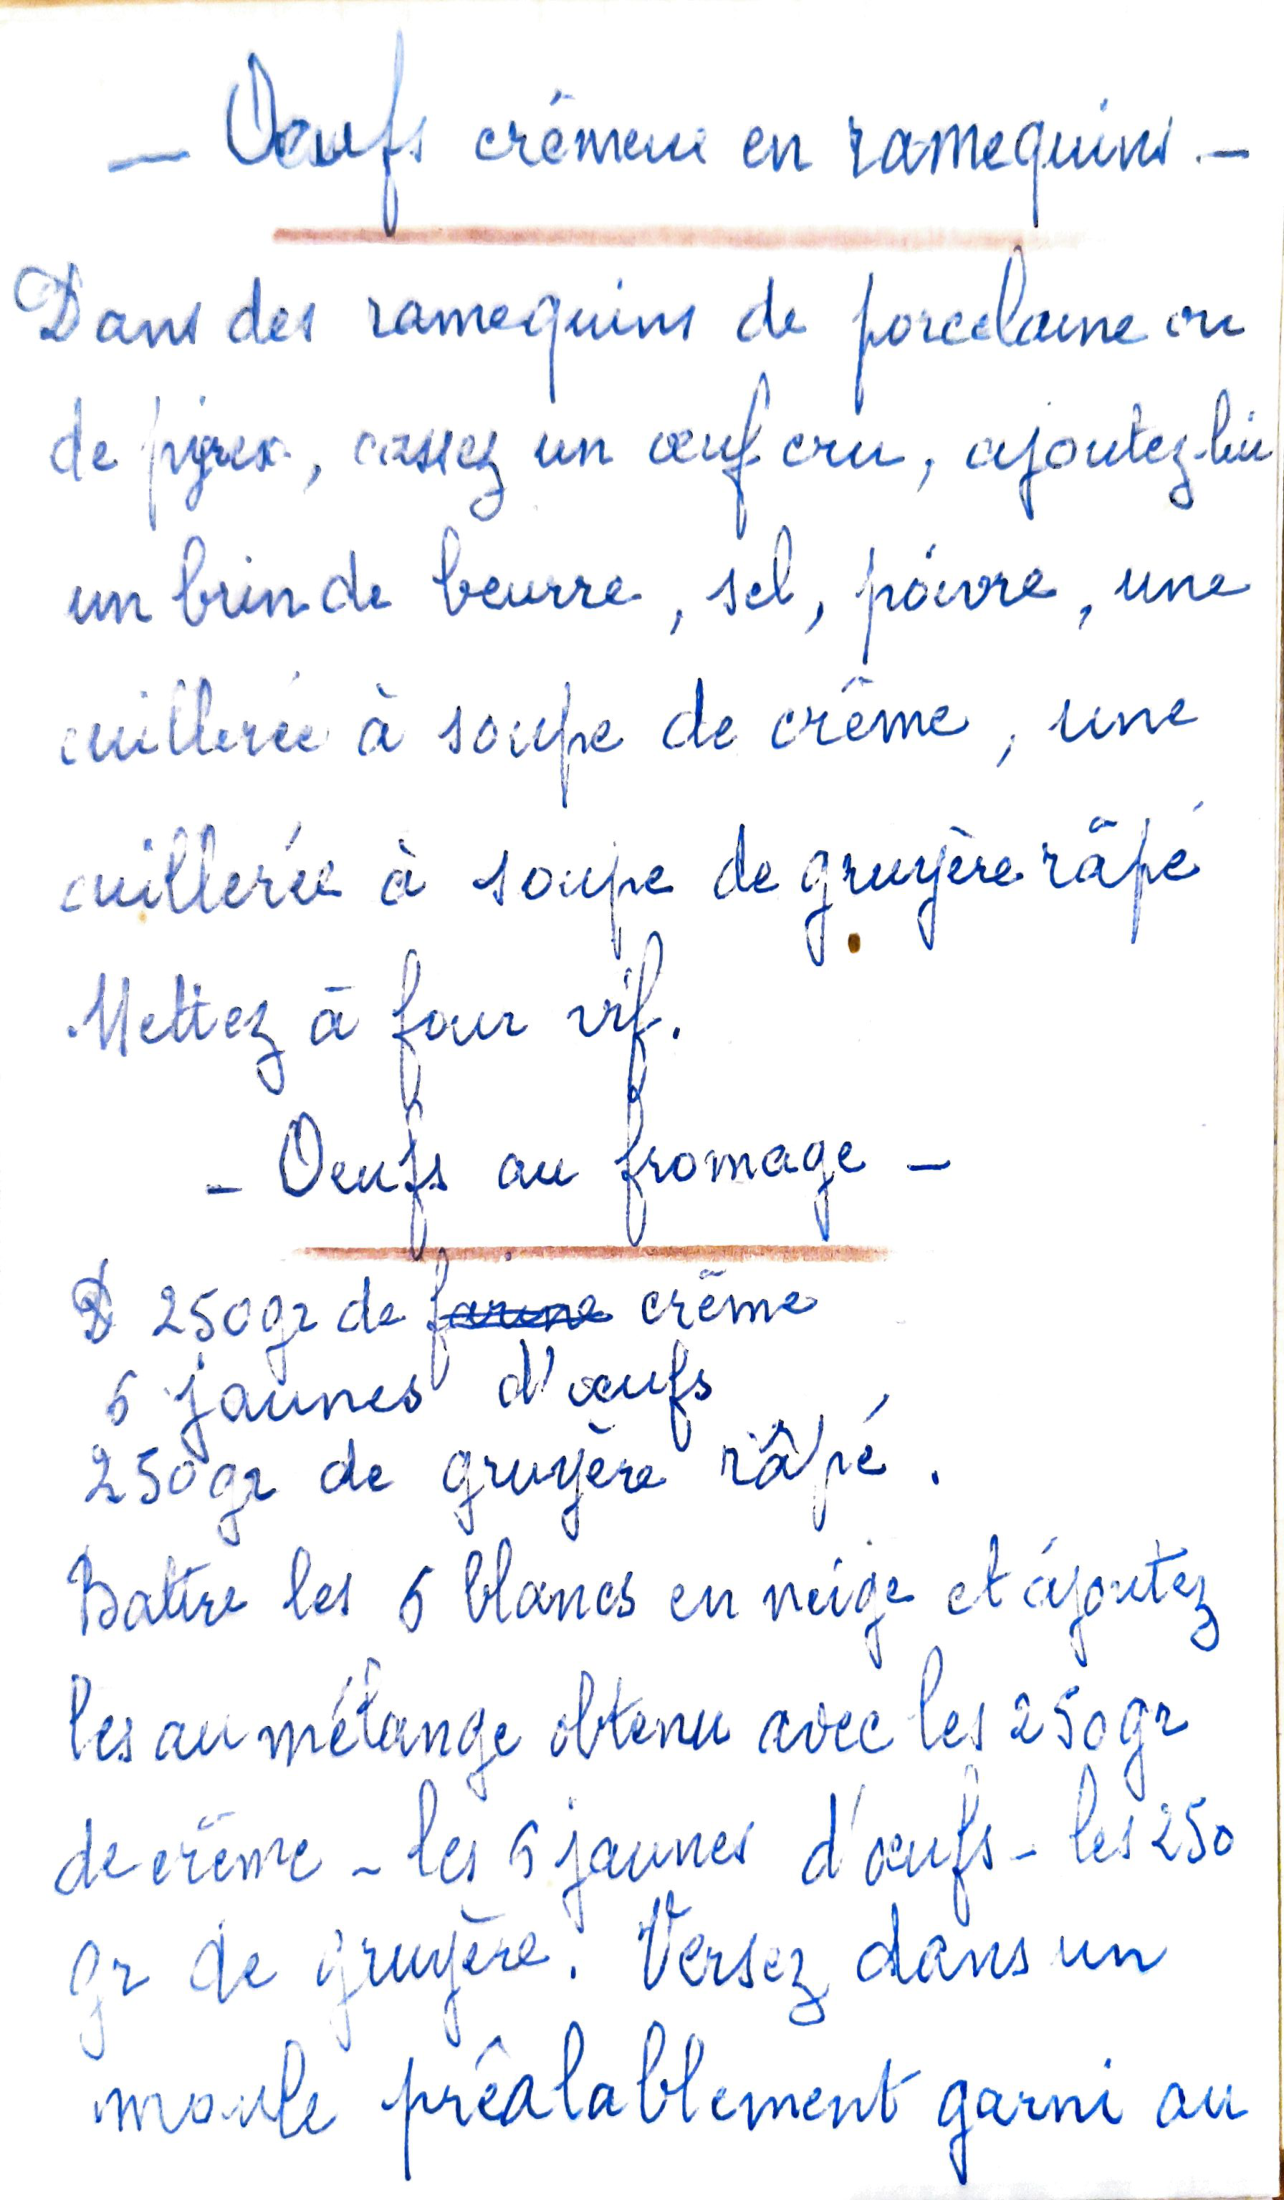 — Oeufs crêmeux en ramequins —
Dans des ramequins de porcelaine ou
de pyrex, cassez un œuf cru, ajoutez-lui
un brin de beurre, sel, poivre, une
cuillerée à soupe de crême, une
cuillerée à soupe de gruyère râpé
Mettez à four vif.
- Oeufs au fromage -
250gr de farine crême
6 jaunes d'œufs
250gr de gruyère râpé.
Battre les 6 blancs en neige et ajoutez
les au mélange obtenu avec les 250gr
de crême - les 6 jaunes d'œufs - les 250
gr de gruyère. Versez dans un
moule prêalablement garni au